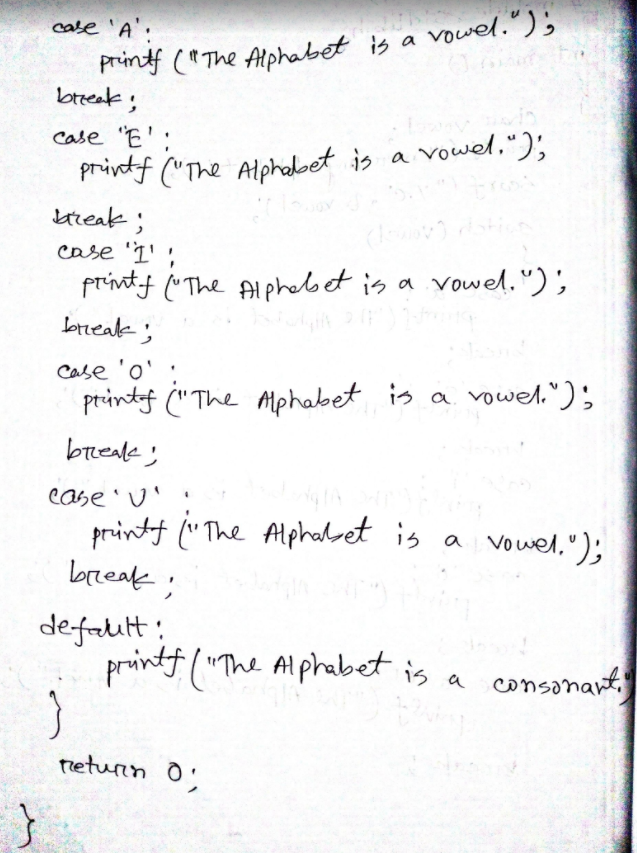 case 'A':
printf ("The Alphabet is a vowel.");
break;
case 'E':
printf ("The Alphabet is a vowel.");
break;
case 'I':
printf ("The Alphabet is a vowel.");
break;
case 'O':
printf ("The Alphabet is a vowel.");
break;
case 'U':
printf ("The Alphabet is a vowel.");
break;
default:
printf ("The Alphabet is a consonant.")
}
return 0;
}